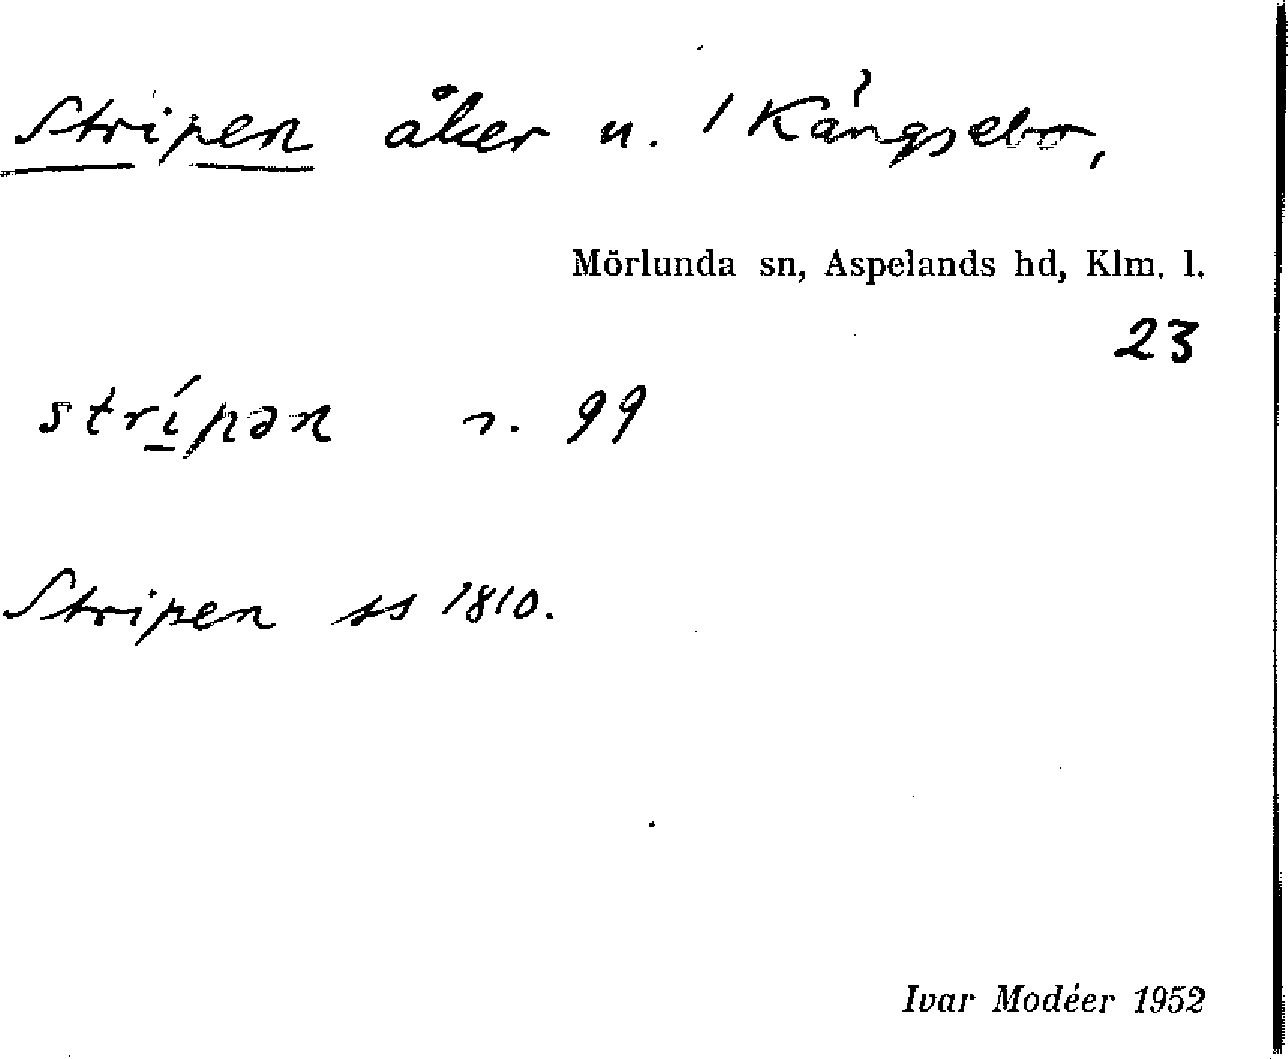 Stripen åker n. 1 Kångsebo,
Mörlunda sn, Aspelands hd, Klm. l.
23
strípən r. 99
Stripen ss 1810.
Ivar Modéer 1952